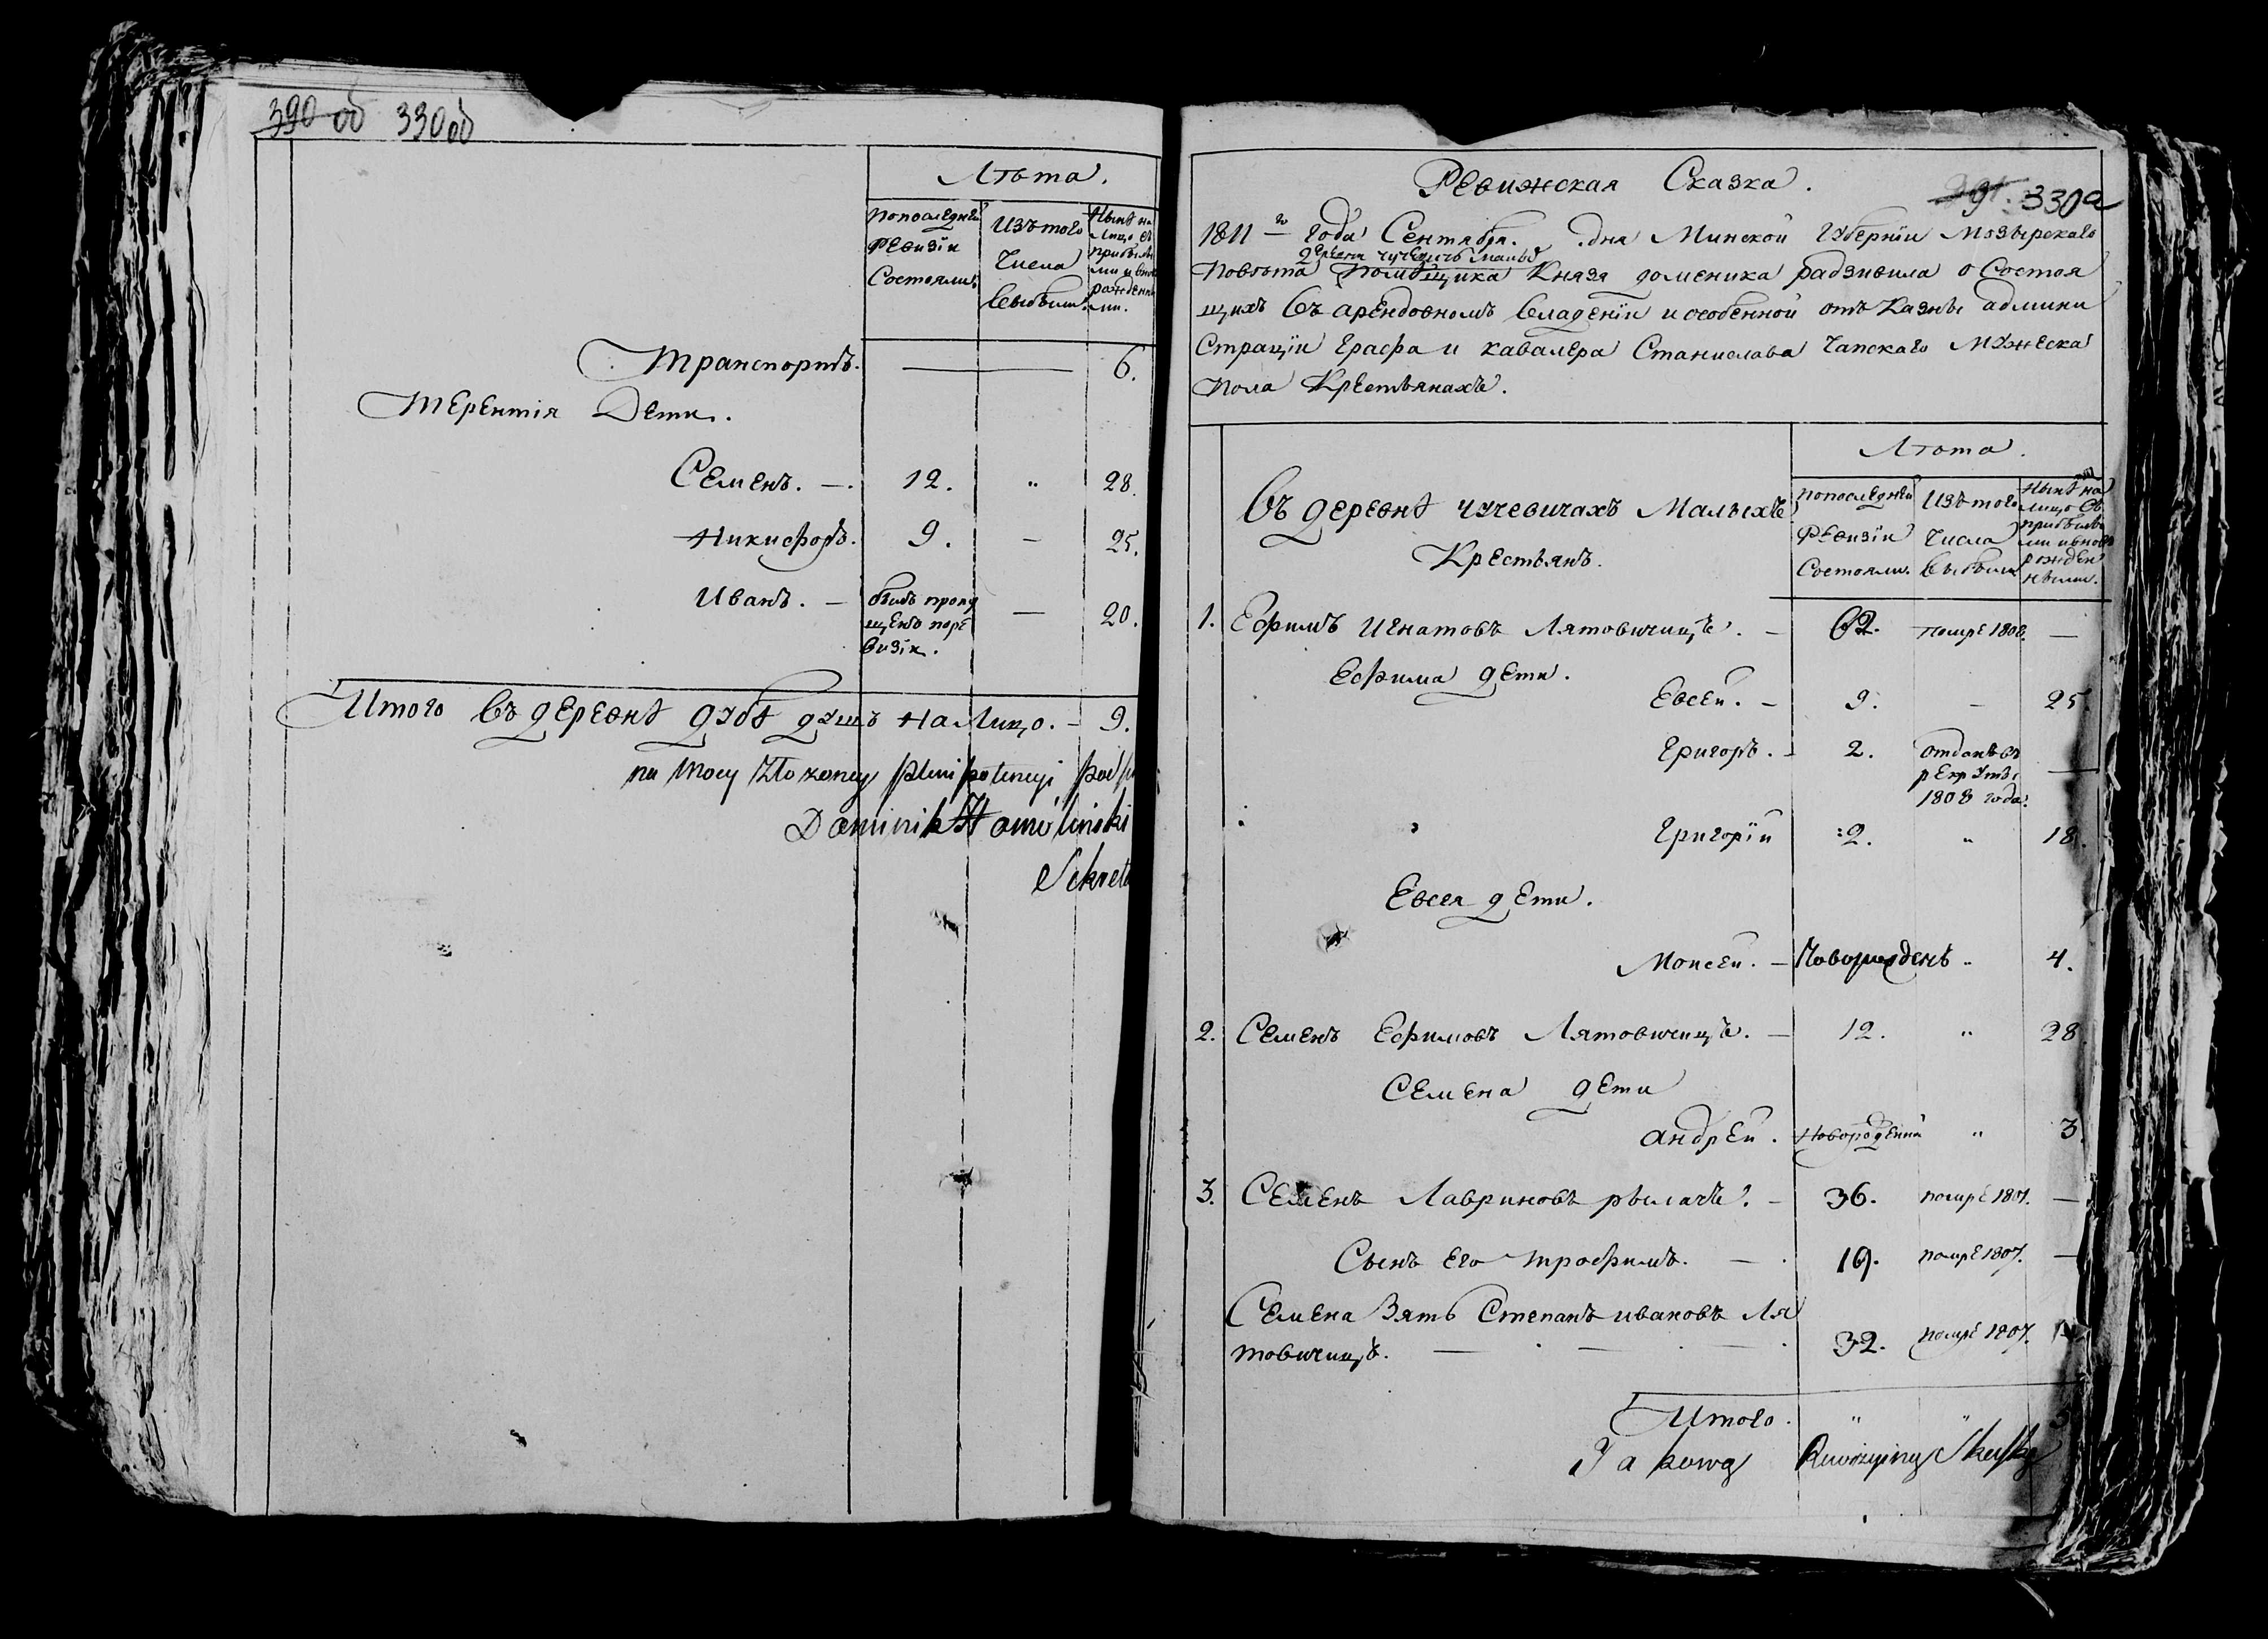 390 об 330 об
Лѣта.
Попослѣдней Ревизіи Состояли.
Изътого Числа Выбыли.
Нынѣ на Лицо съ прибылы ми и внов рожденны ми.
Транспортъ. 6.
Терентія Дети.
Семенъ. 12. " 28.
Никифоръ. 9. — 25.
Иванъ. — былъ пропу щенъ поре визіи. — 20.
Итого Въ деревнѣ дубѣ душъ на Лицо. — 9.
na mocy złożoney plenipotencyi
Dominik
Sekret
Ревижская Сказка.
391. 330а
1811 го Года Сентября. дня Минской Губерніи Мозырского
деревни чучевичъ малыхъ
Повѣта Помѣщика Князя доменика радзивила о Состоя
щихъ Въ арендовномъ владеніи и особенной отъ Казны админи
страціи Графа и кавалера Станислава Чапского Мужеска
Пола Крестьянахъ.
Лѣта.
Въ деревнѣ чучевичахъ Малыхъ
Крестьянъ.
Попослѣдней Ревизіи Состояли.
Изътого Числа Выбыли
Нынѣ на лицо съ прибылы ми ивновь рожден ными.
1. Ефимъ Игнатовъ Лятовичицъ. — 62. помре 1808. —
Ефима дети.
Евсей. — 9. — 25.
Григоръ. — 2. отданъ въ рекруты 1808 года. —
Григорій 2. " 18.
Евсея дети.
Моисей. — Новорожденъ " 4.
2. Семенъ Ефимовъ Лятовичицъ. — 12. " 28
Семена дети
андрей. Новорожденный " 3.
3. Семенъ Лавриновъ рылачъ. — 36. помре 1801. —
Сынъ Его трофимъ. — 19. помре 1807. —
Семена Зять Степанъ ивановъ Ля
товичицъ. — 32. помре 1807.
Итого. " "
Takową Rewizyiną Skaskę